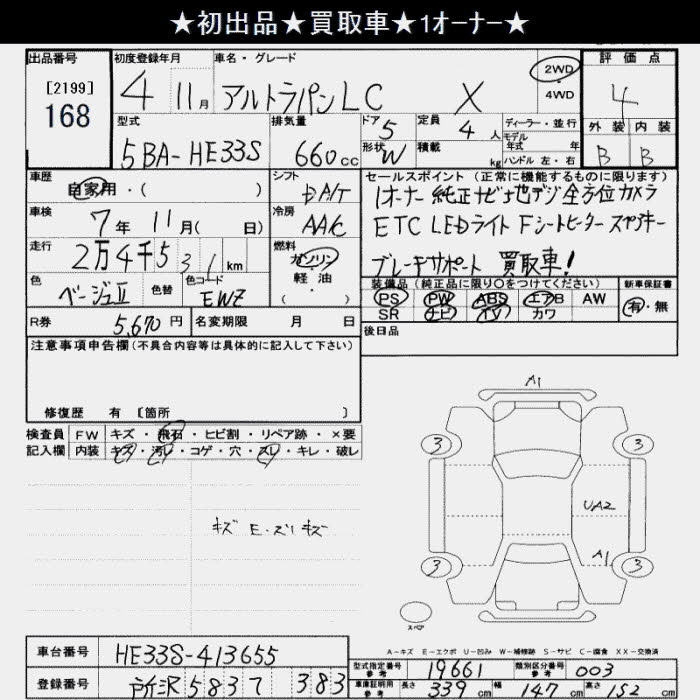 ★初出品★買取車★1オーナー★
出品番号 [2199] 168
初度登録年月 4 11月
車名・グレード アルトラパンLC X
2WD・4WD
評価点 4
外装 B 内装 B
型式 5BA-HE33S
排気量 660cc
ドア 5 形状 W
定員 4人 積載 kg
ディーラー・並行
モデル年式 年
ハンドル 左・右
車歴 自家用・( )
シフト DA/T
車検 7年 11月( 日)
冷房 AA/C
走行 2万4千531km
燃料 ガソリン・軽油・( )
色 ベージュⅡ 色替 色コード EWZ
R券 5,670円 名変期限 月 日
セールスポイント(正常に機能するものに限ります)
1オーナー 純正ナビ地デジ 全方位カメラ
ETC LEDライト Fシートヒーター スペアキー
ブレーキサポート 買取車!
装備品(純正品に限り〇をつけてください) 新車保証書
PS PW ABS エアB AW 有・無
SR ナビ TV カワ
後日品
注意事項申告欄(不具合内容等は具体的に記入して下さい)
修復歴 有 〔箇所 〕
検査員記入欄
FW キズ・飛石・ヒビ割・リペア跡・×要
内装 キズ・汚レ・コゲ・穴・スレ・キレ・破レ
キズ E・ズレキズ
A1
3 3
UA2
A1
3 3
スペア
A-キズ E-エクボ U-凹み W-補修跡 S-サビ C-腐食 XX-交換済
車台番号 HE33S-413655
登録番号 所沢 583 7 383
型式指定番号 参考 19661 類別区分番号 参考 003
車庫証明用 参考 長さ 339cm 幅 147cm 高さ 152cm